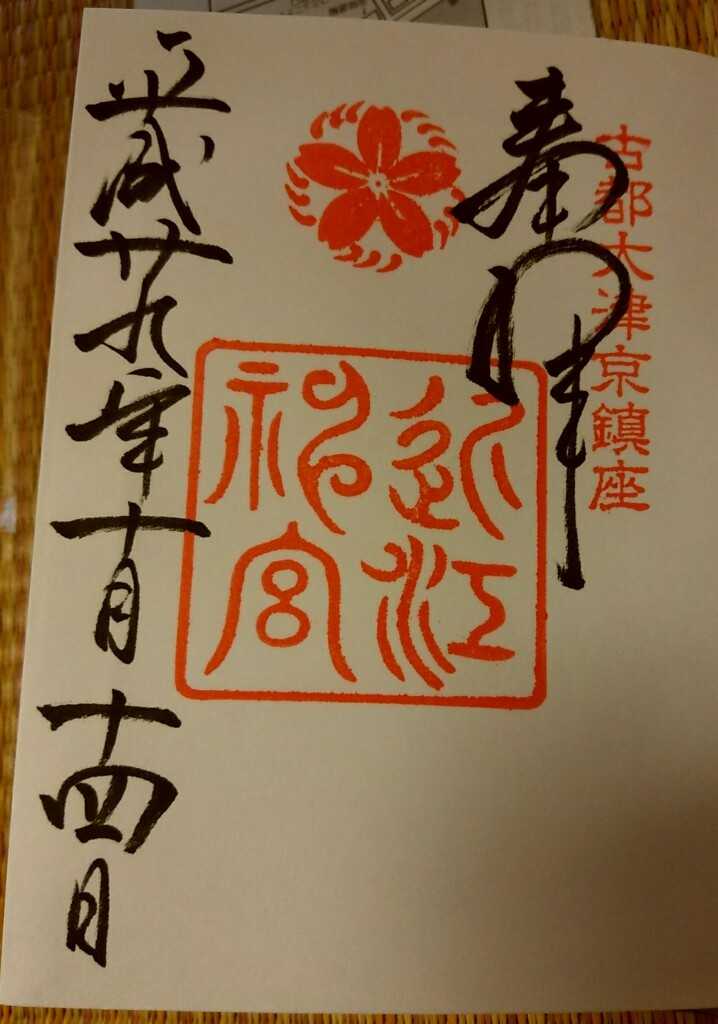 古都大津京鎮座
奉拝
近江
神宮
平成廿九年十月十四日